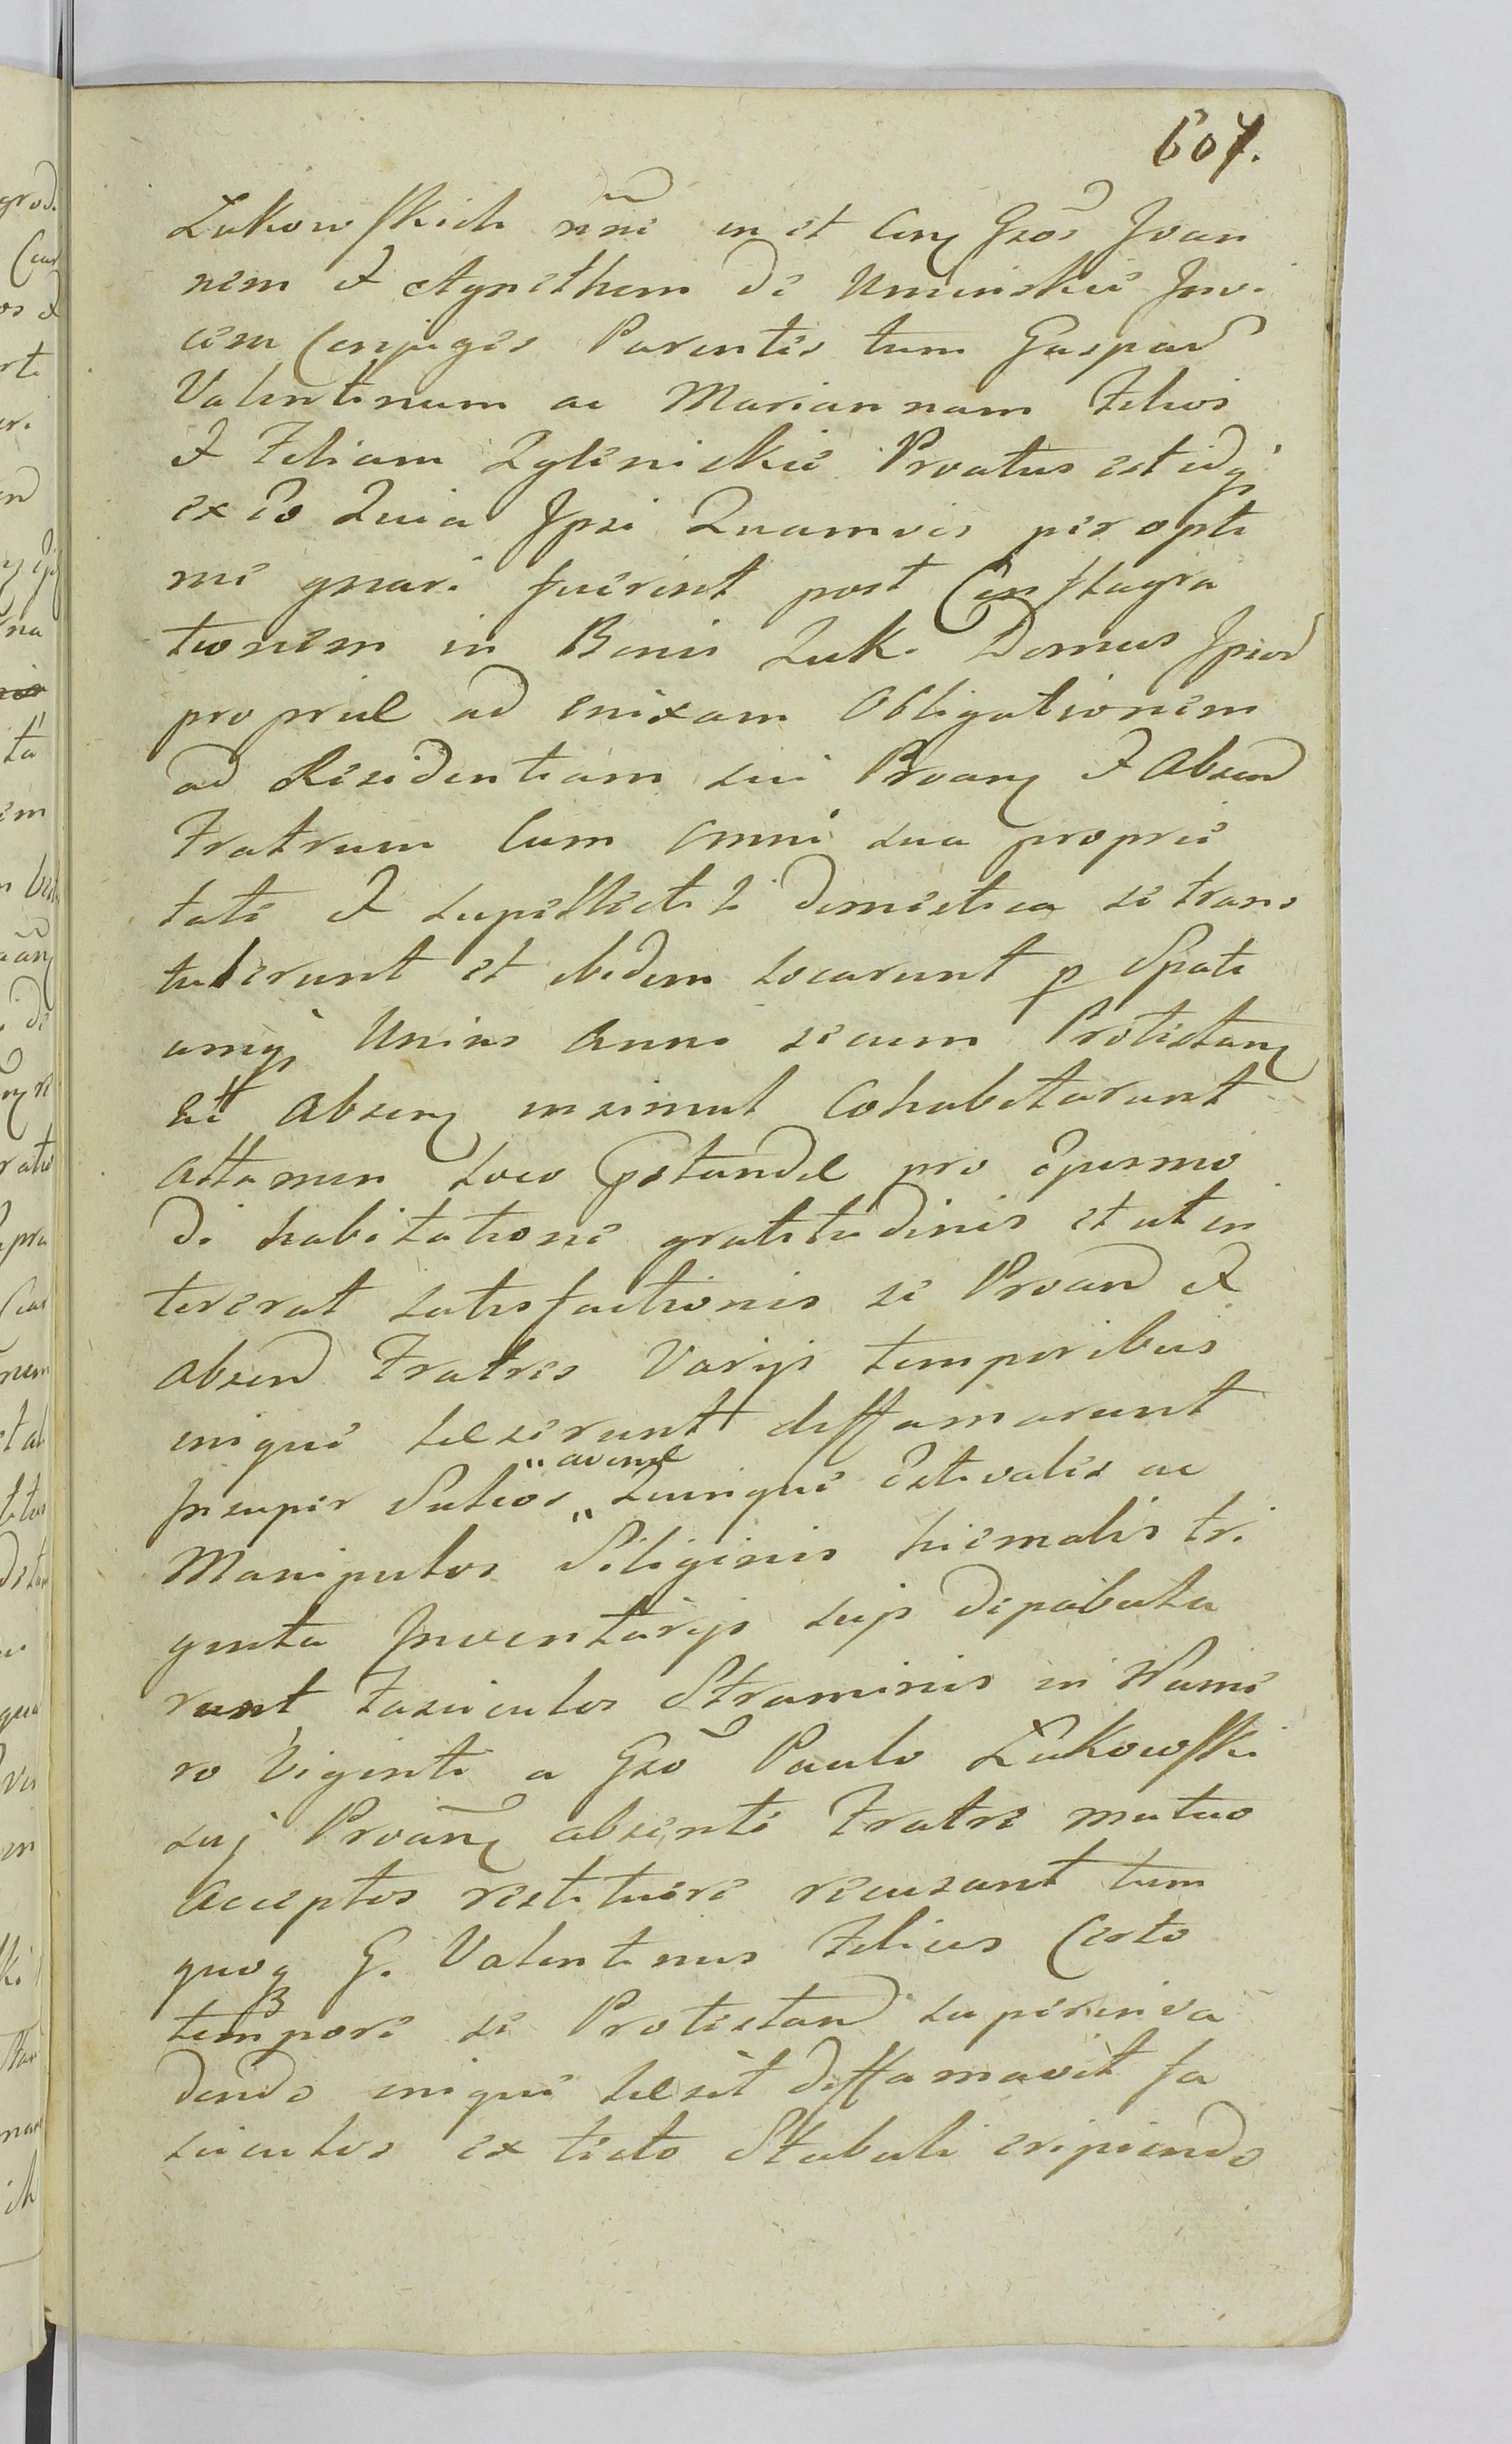 607.
Łukowskich nnĩe in et Cnĩ Gsõs Joan
nem & Agnethem de Uminskie Invi
cem Conjuges Parentes tum Gaspar
Valentinum ac Mariannam Filios
& Filiam Zglenickie Proatus est idq
ex eo Quia Ipsi Quamvis per opti
me gnari fuerint post Conflagra
tionem in Bonis Łuk. Domus Ipsor
propriæ ad enixam obligationem
ad Residentiam sui Proan & Absen
Fratrum Cum omni sua proprie
tate & supellectili domestica se trans
tulerunt et ibidem locarunt p Spati
umq Unius anni secum Protestan
ett Absen insimul Cohabitarunt
attamen loco pstandæ pro ejusmo
di habitatione gratitudinis et ut in
tererat satisfactionis se Proan &
absen Fratres Varijs temporibus
inique læserunt diffamarunt
Insuper Sulcos " avenæ " Quinque Estivales ac
Manipulos Siliginis hiemalis tri
ginta Inventarijs suis depabula
runt fasciculos Straminis in Nume
ro Viginti a Gsõ Paulo Łukowski
suj Proañ absenti Fratre mutuo
acceptos restituere recusant tum
quoq G. Valentinus Filius Certo
tempore se Protestan superinva
dendo inique læsit diffamavit fa
siculos ex tecto Stabuli eripiendo